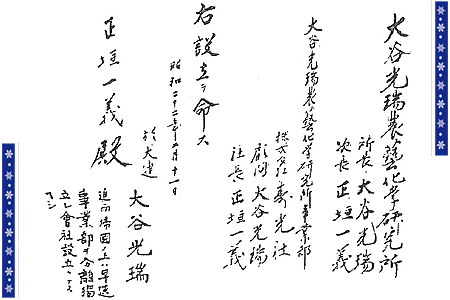 大谷光瑞農藝化学研究所
所長 大谷光瑞
次長 正垣一義
大谷光瑞農藝化学研究所事業部
株式会社 寿光社
顧問 大谷光瑞
社長 正垣一義
右設立ヲ命ス
昭和二十二年 月十一日
於大連
大谷光瑞
正垣一義殿
追而帰国ノ上ハ早速
事業部ヲ分離独
立シ會社設立